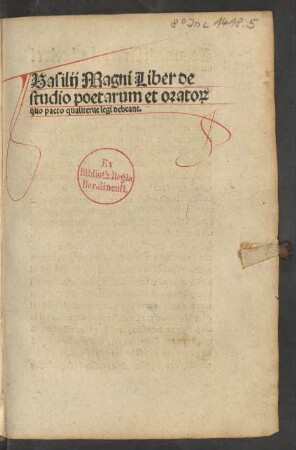 8° Inc 1418.5
Basilij Magni Liber de
studio poetarum et oratoꝝ
quo pacto qualiterue legi debeant.
Ex
Biblioth. Regia
Berolinensi.